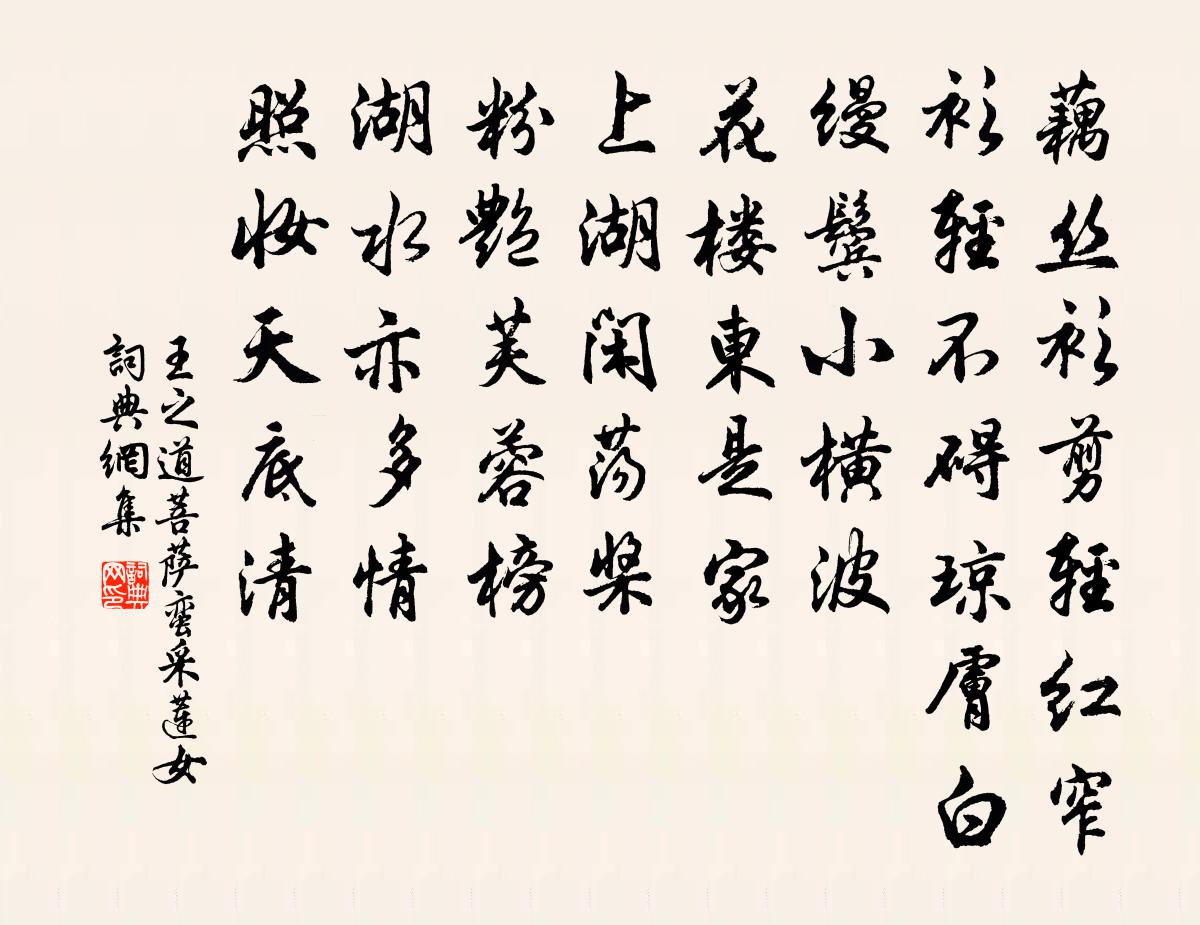 藕丝衫剪輕红窄
衫輕不碍琼膚白
缦鬓小横波
花楼東是家
上湖闲荡桨
粉艷芙蓉榜
湖水亦多情
照妆天底清
王之道菩萨蛮采莲女
詞典網集
詞典网印